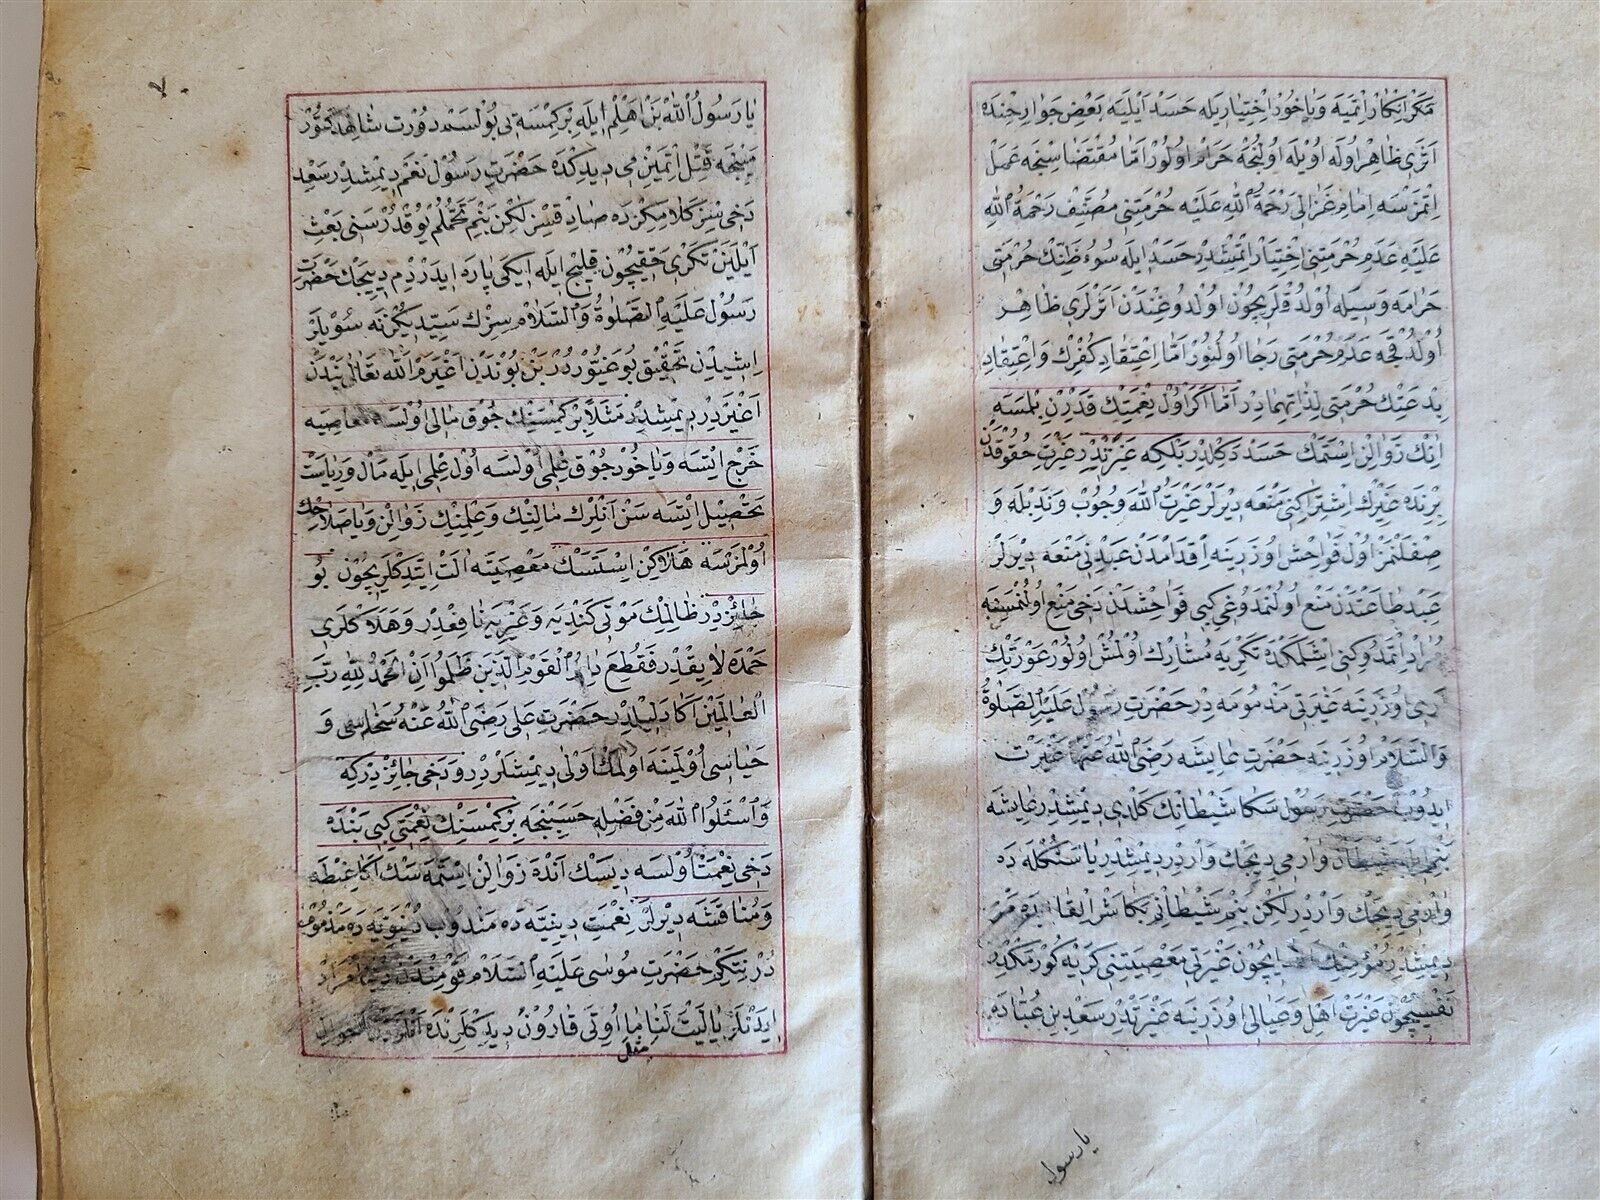 مكر انكار اتميه ويا خود اختياريله حسد ايليه بعض جوارحنده
اثرى ظاهر اوله اويله اولنجه حرام اولور اما مقتضاسنجه عمل
اتمزسه امام غزالى رحمة الله عليه حرمتنى مصنف رحمة الله
عليه عدم حرمتنى اختيار اتمشدر حسد ايله سوء ظنك حرمتى
حرامه وسيله اولدقلريچون اولدوغندن اثرلرى ظاهر
اولدقچه عدم حرمتى رجا اولنور اما اعتقاد كفرك واعتقاد
بدعتك حرمتى لذاتهمادر اما اكر اول نعمتك قدرن بلمسه
انك زوالن استمك حسد دكلدر بلكه غيرتدر غيرت حقوقدن
برنده غيرك اشتراكنى منعه ديرلر غيرت الله وجوب وندبله و
صفلنمز اول فواحش اوزرينه اقدامدن عبدنى منعه ديرلر
عبد طاعتدن منع اولندوغى كبى فواحشدن دخى منع اولنمسنه
مراد اتمدوكنى اشلمكده تكريه مشارك اولمش اولور عورتك
ارى اوزرينه غيرتى مذمومه در حضرت رسول عليه الصلوة
والسلام اوزرينه حضرت عايشه رضى الله عنها غيرت
ايدوب حضرت رسول سكا شيطانك كلدى ديمشدر عايشه
بنم شيطانم وارمى ديجك واردر ديمشدر يا سنكله ده
وارمى ديجك واردر لكن بنم شيطانم بكا شر القا ايده مز
ديمشدر مؤمنك ايچون غيرتى معصيتنى كريه كورمكده
نفسيچون غيرت اهل وعيالى اوزرينه غيرتدر سعد بن عباده
يا رسول
٧
يا رسول الله بن اهلم ايله بر كمسه يى بولسم دورت شاهد كتور
مينجه قتل اتمين مى ديدكده حضرت رسول نعم ديمشدر سعد
دخى سز كلامكزده صادقسز لكن بنم تحملم يوقدر سنى بعث
ايلين تكرى حقيچون قليج ايله ايكى پاره ايدردم ديجك حضرت
رسول عليه الصلوة والسلام سزك سيديكز نه سويلر
اشيدن تحقيق بو غيوردر بن بوندن اغيرم الله تعالى بندن
اغيردر ديمشدر مثلا بر كمسنك چوق مالى اولسه معاصيه
خرج ايتسه ويا خود چوق علمى اولسه اول علمى ايله مال ورياست
تحصيل ايتسه سن آنلرك مالنك وعلمنك زوالن ويا صلاحك
اولمزسه هلاكن استسك معصيته آلت ايتدكلريچون بو
جائزدر ظالمك موتى كنديه وغيريه نافعدر وهلاكلرى
حمده لايقدر فقطع دابر القوم الذين ظلموا ان الحمد لله رب
العالمين اكا دليلدر حضرت على رضى الله عنه سخاسى و
حياسى اولمينه اولمك اولى ديمشلردر ودخى جائزدركه
واسئلوا الله من فضله حسبنجه بر كمسنك نعمتى كبى بنده
دخى نعمت اولسه ديسك آنده زوالن استمه سك اكا غبطه
ومنافسه ديرلر نعمت دينيه ده مندوب دنيويه ده مذموم
در نتكم حضرت موسى عليه السلام قومندن دنيا مراد
ايدنلر يا ليت لنا مثل ما اوتى قارون ديدكلرنده